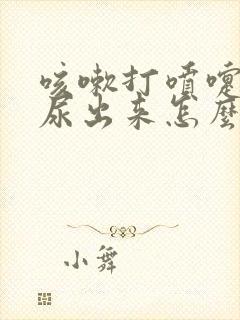 咳嗽打喷嚏
尿出来怎麼
小舞